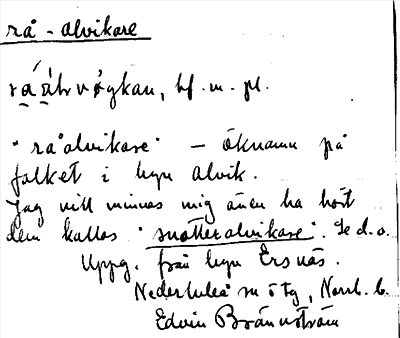 rå-alvikare
bf. m. pl.
"råalvikare" – öknamn på
folket i byn Alvik.
Jag vill minnas mig även ha hört
dem kallas "snötteralvikare". Se d.o.
Uppg. från byn Ersnäs.
Nederluleå sn ö tg, Norrb. l.
Edvin Brännström